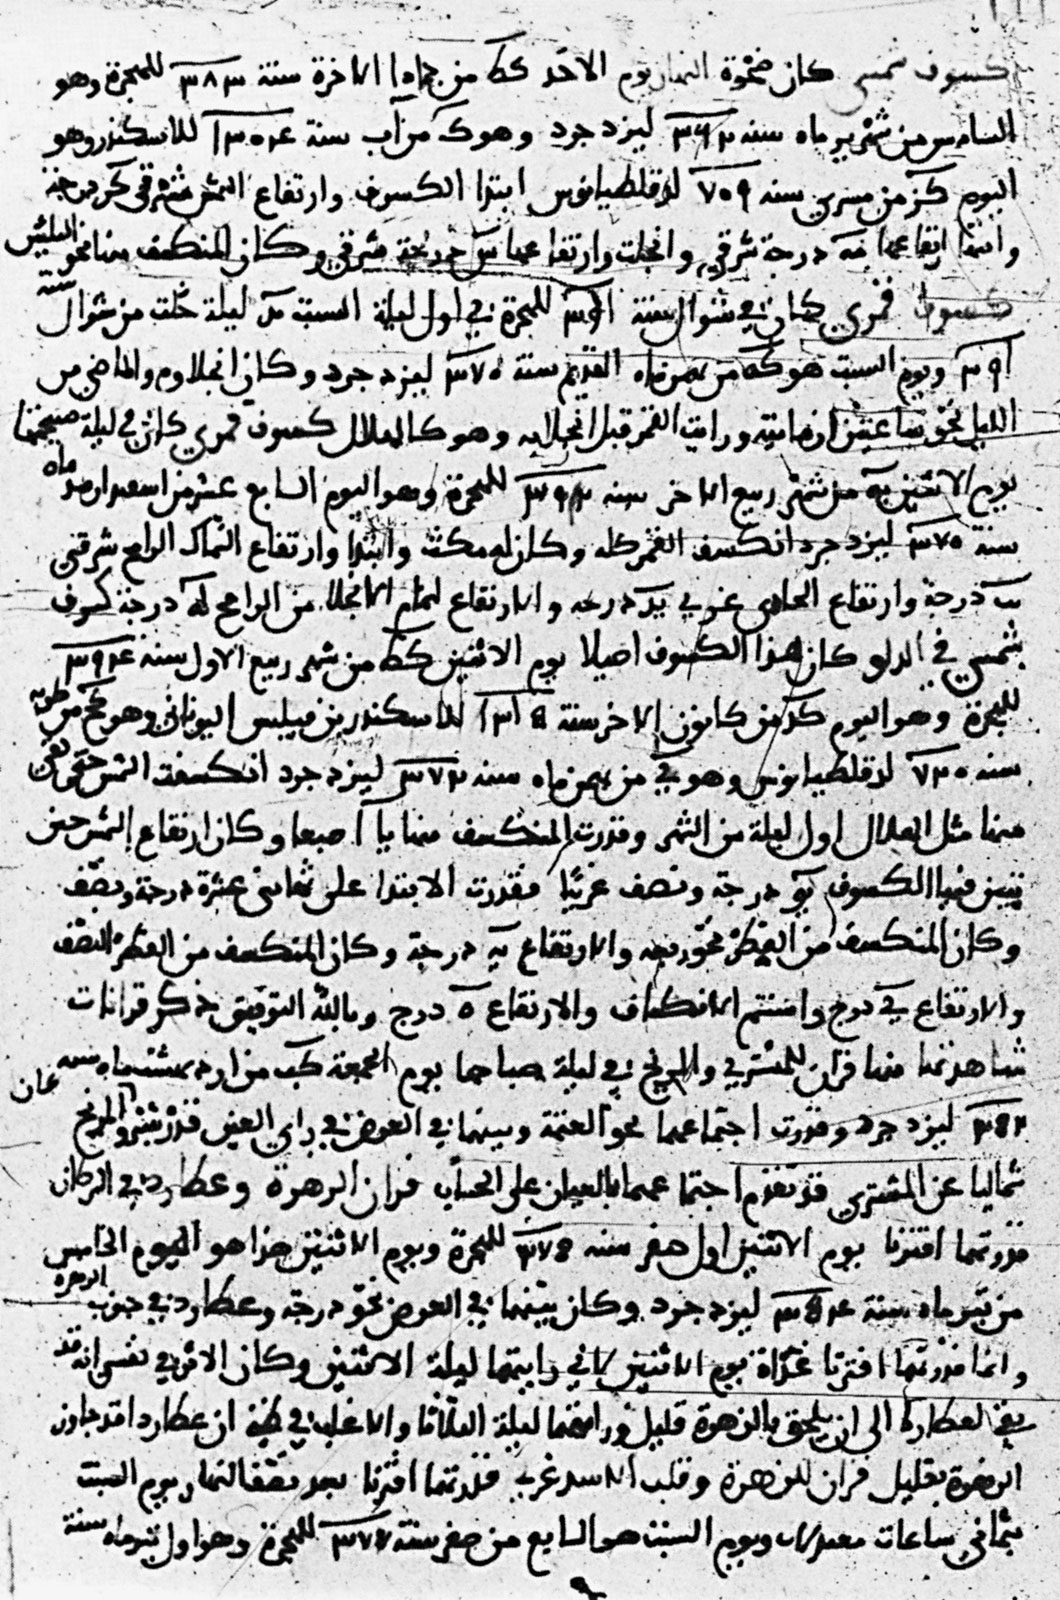 كسوف شمسي كان ضحوة النهار يوم الاحد كط من جمادا الاخرة سنة ٣٨٣ للهجرة وهو
السادس من شهرير ماه سنه ٣٦٢ ليزدجرد وهو ك من آب سنة ١٣٠٤ للاسكندر وهو
اليوم كز من مسري سنه ٧٠٩ لدقلطيانوس ابتدا الكسوف وارتفاع الشمس شرقي كز درجة
درجة شرقي وانجلت وارتفاعها درجة شرقي وكان المنكسف منها نحو الثلثين
كسوف قمري كان في شوال سنة للهجرة في اول ليلة السبت يد ليلة خلت من شوال سنة
ويوم السبت هو كه من بهمن ماه القديم سنة ٣٧٠ ليزدجرد وكان انجلاوه والماضي من
الليل نحو ساعتين زمانية ورايت القمر قبل انجلايه وهو كالهلال كسوف قمري كان في ليلة صبيحتها
يوم الاثنين يه من شهر ربيع الاخر سنه ٣٩٢ للهجرة وهو اليوم السابع عشر من اسفندارمذ ماه
سنة ٣٧٠ ليزدجرد انكسف القمر كله وكان له مكث وابتدا وارتفاع السماك الرامح شرقي
درجة وارتفاع غربي يد درجه والارتفاع لتمام الانجلا من الرامح له درجة كسوف
شمسي في الدلو كان هذا الكسوف اصيلا يوم الاثنين كط من شهر ربيع الاول سنة ٣٩٤
للهجرة وهو اليوم كد من كانون الاخر سنة للاسكندر بن فيلبس اليوناني وهو كح من طوبه
سنه ٧٢٠ لدقلطيانوس وهو من بهمن ماه سنه ٣٧٢ ليزدجرد انكسفت الشمس حتى بقى
منها مثل الهلال اول ليلة من الشهر وقدرت المنكسف منها يا اصبعا وكان ارتفاع الشمس حين
تبين فيها الكسوف يو درجة ونصف غربيا فقدرت الابتدا على ثمانى عشرة درجة ونصف
وكان المنكسف من القطر نحو ربعه والارتفاع يه درجة وكان المنكسف من القطر النصف
والارتفاع ي درج واستتم الانكساف والارتفاع ه درج وبالله التوفيق ذكر قرانات
شاهدتها منها قران للمشتري والمريخ في ليلة صباحها يوم الجمعة كب من اردبهشتماه سنه
ليزدجرد وقدرت اجتماعهما نحو العتمة وبينهما في العرض في راي العين قدر شبر والمريخ كان
شماليا عن المشترى قد تقدم اجتماعهما بالعيان على الحساب قران الزهرة وعطارد في السرطان
قدرتهما اقترنا يوم الاثنين اول صفر سنه للهجرة ويوم الاثنين هذا هو اليوم الخامس
من تير ماه سنة ليزدجرد وكان بينهما في العرض نحو درجة وعطارد في جنوب الزهرة
وانما قدرتهما اقترنا غداة يوم الاثنين لاني رايتهما ليلة الاثنين وكان الاثر في نفسي انه قد
بقى لعطارد الى ان يلحق بالزهرة قليل ورايتهما ليلة الثلاثا والاغلب في ظني ان عطاردا قد جاوز
الزهرة بقليل قران للزهرة وقلب الاسد غربي قدرتهما اقترنا بعد نصف النهار يوم السبت
بثماني ساعات معتدلات ويوم السبت هو السابع من صفر سنة للهجرة وهو اول تيرماه سنة